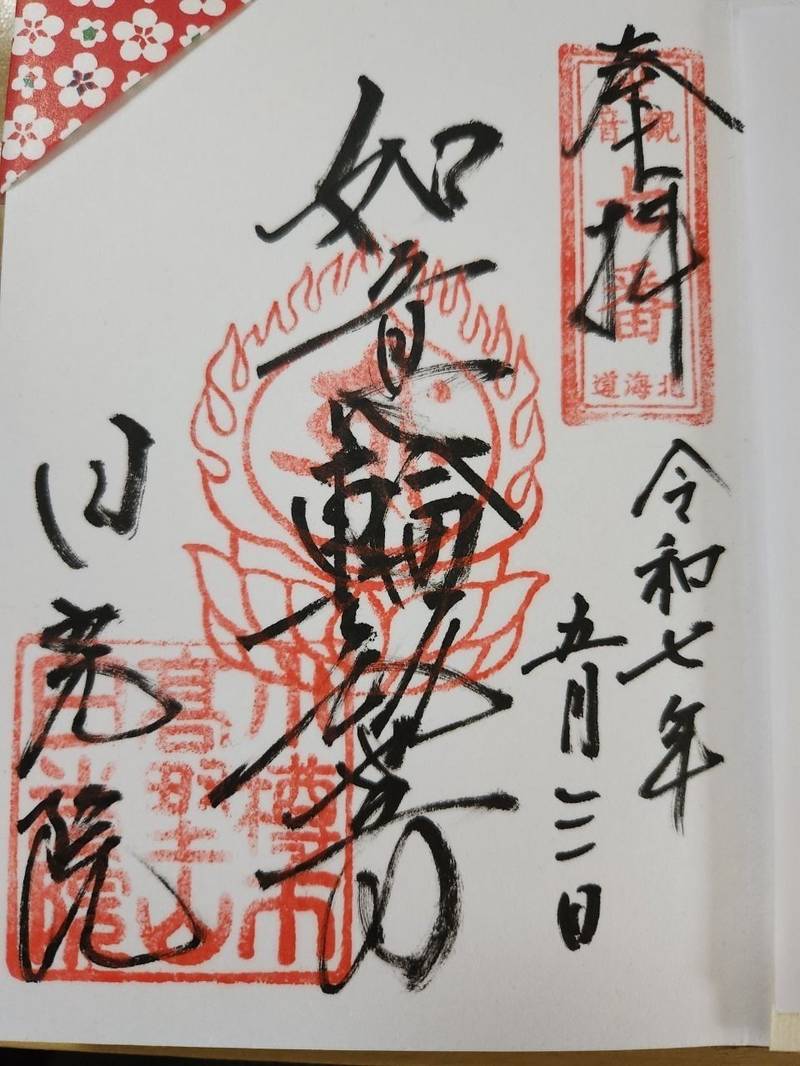 奉拝
観音
七番
北海道
令和七年
五月三日
如意輪観世音
日光院
小樽市
高野山
日光院